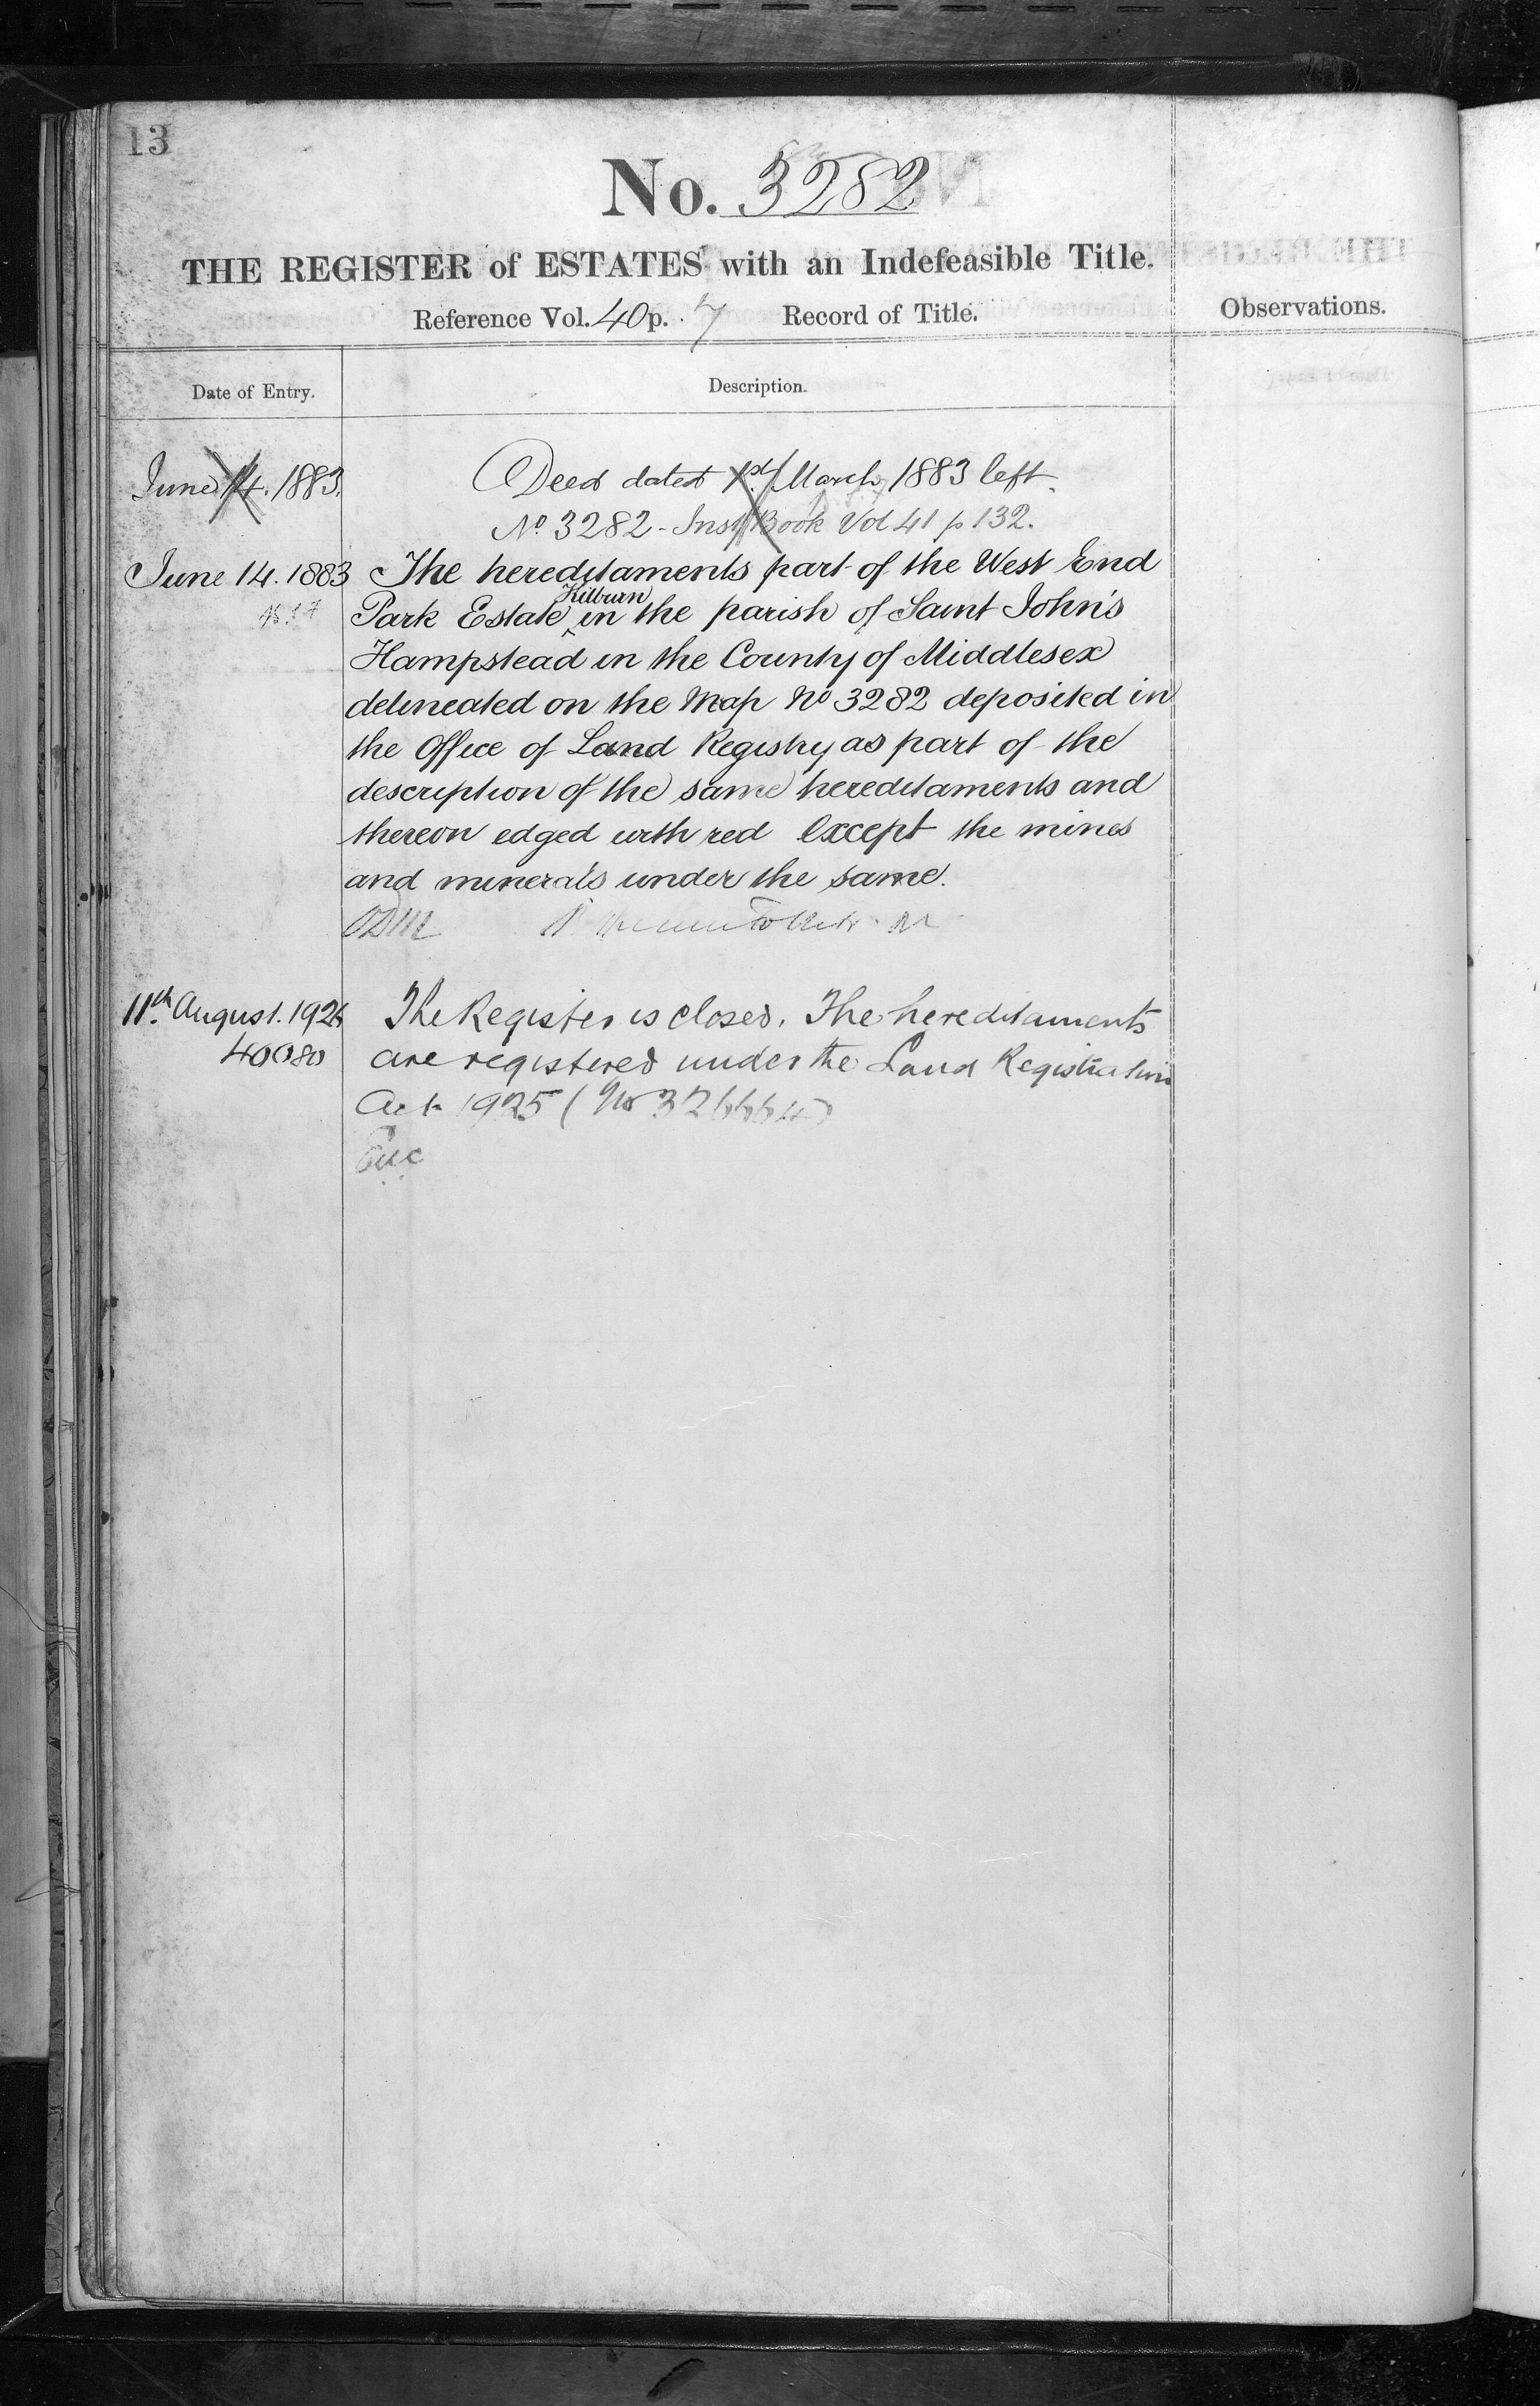 13
No. 3282
THE REGISTER of ESTATES with an Indefeasible Title.
Reference Vol. 40 p. 7 Record of Title.
Observations.
Date of Entry.
Description.
June 14. 1883. Deed dated 1st March 1883 left.
No 3282 - Inst Book Vol 41 p 132.
June 14. 1883 The hereditaments part of the West End
Kilburn
Park Estate ‸ in the parish of Saint John's
Hampstead in the County of Middlesex
delineated on the Map No 3282 deposited in
the Office of Land Registry as part of the
description of the same hereditaments and
thereon edged with red except the mines
and minerals under the same.
11th August. 1926 The Register is closed. The hereditaments
40080 are registered under the Land Registration
Act 1925 (No 326664)